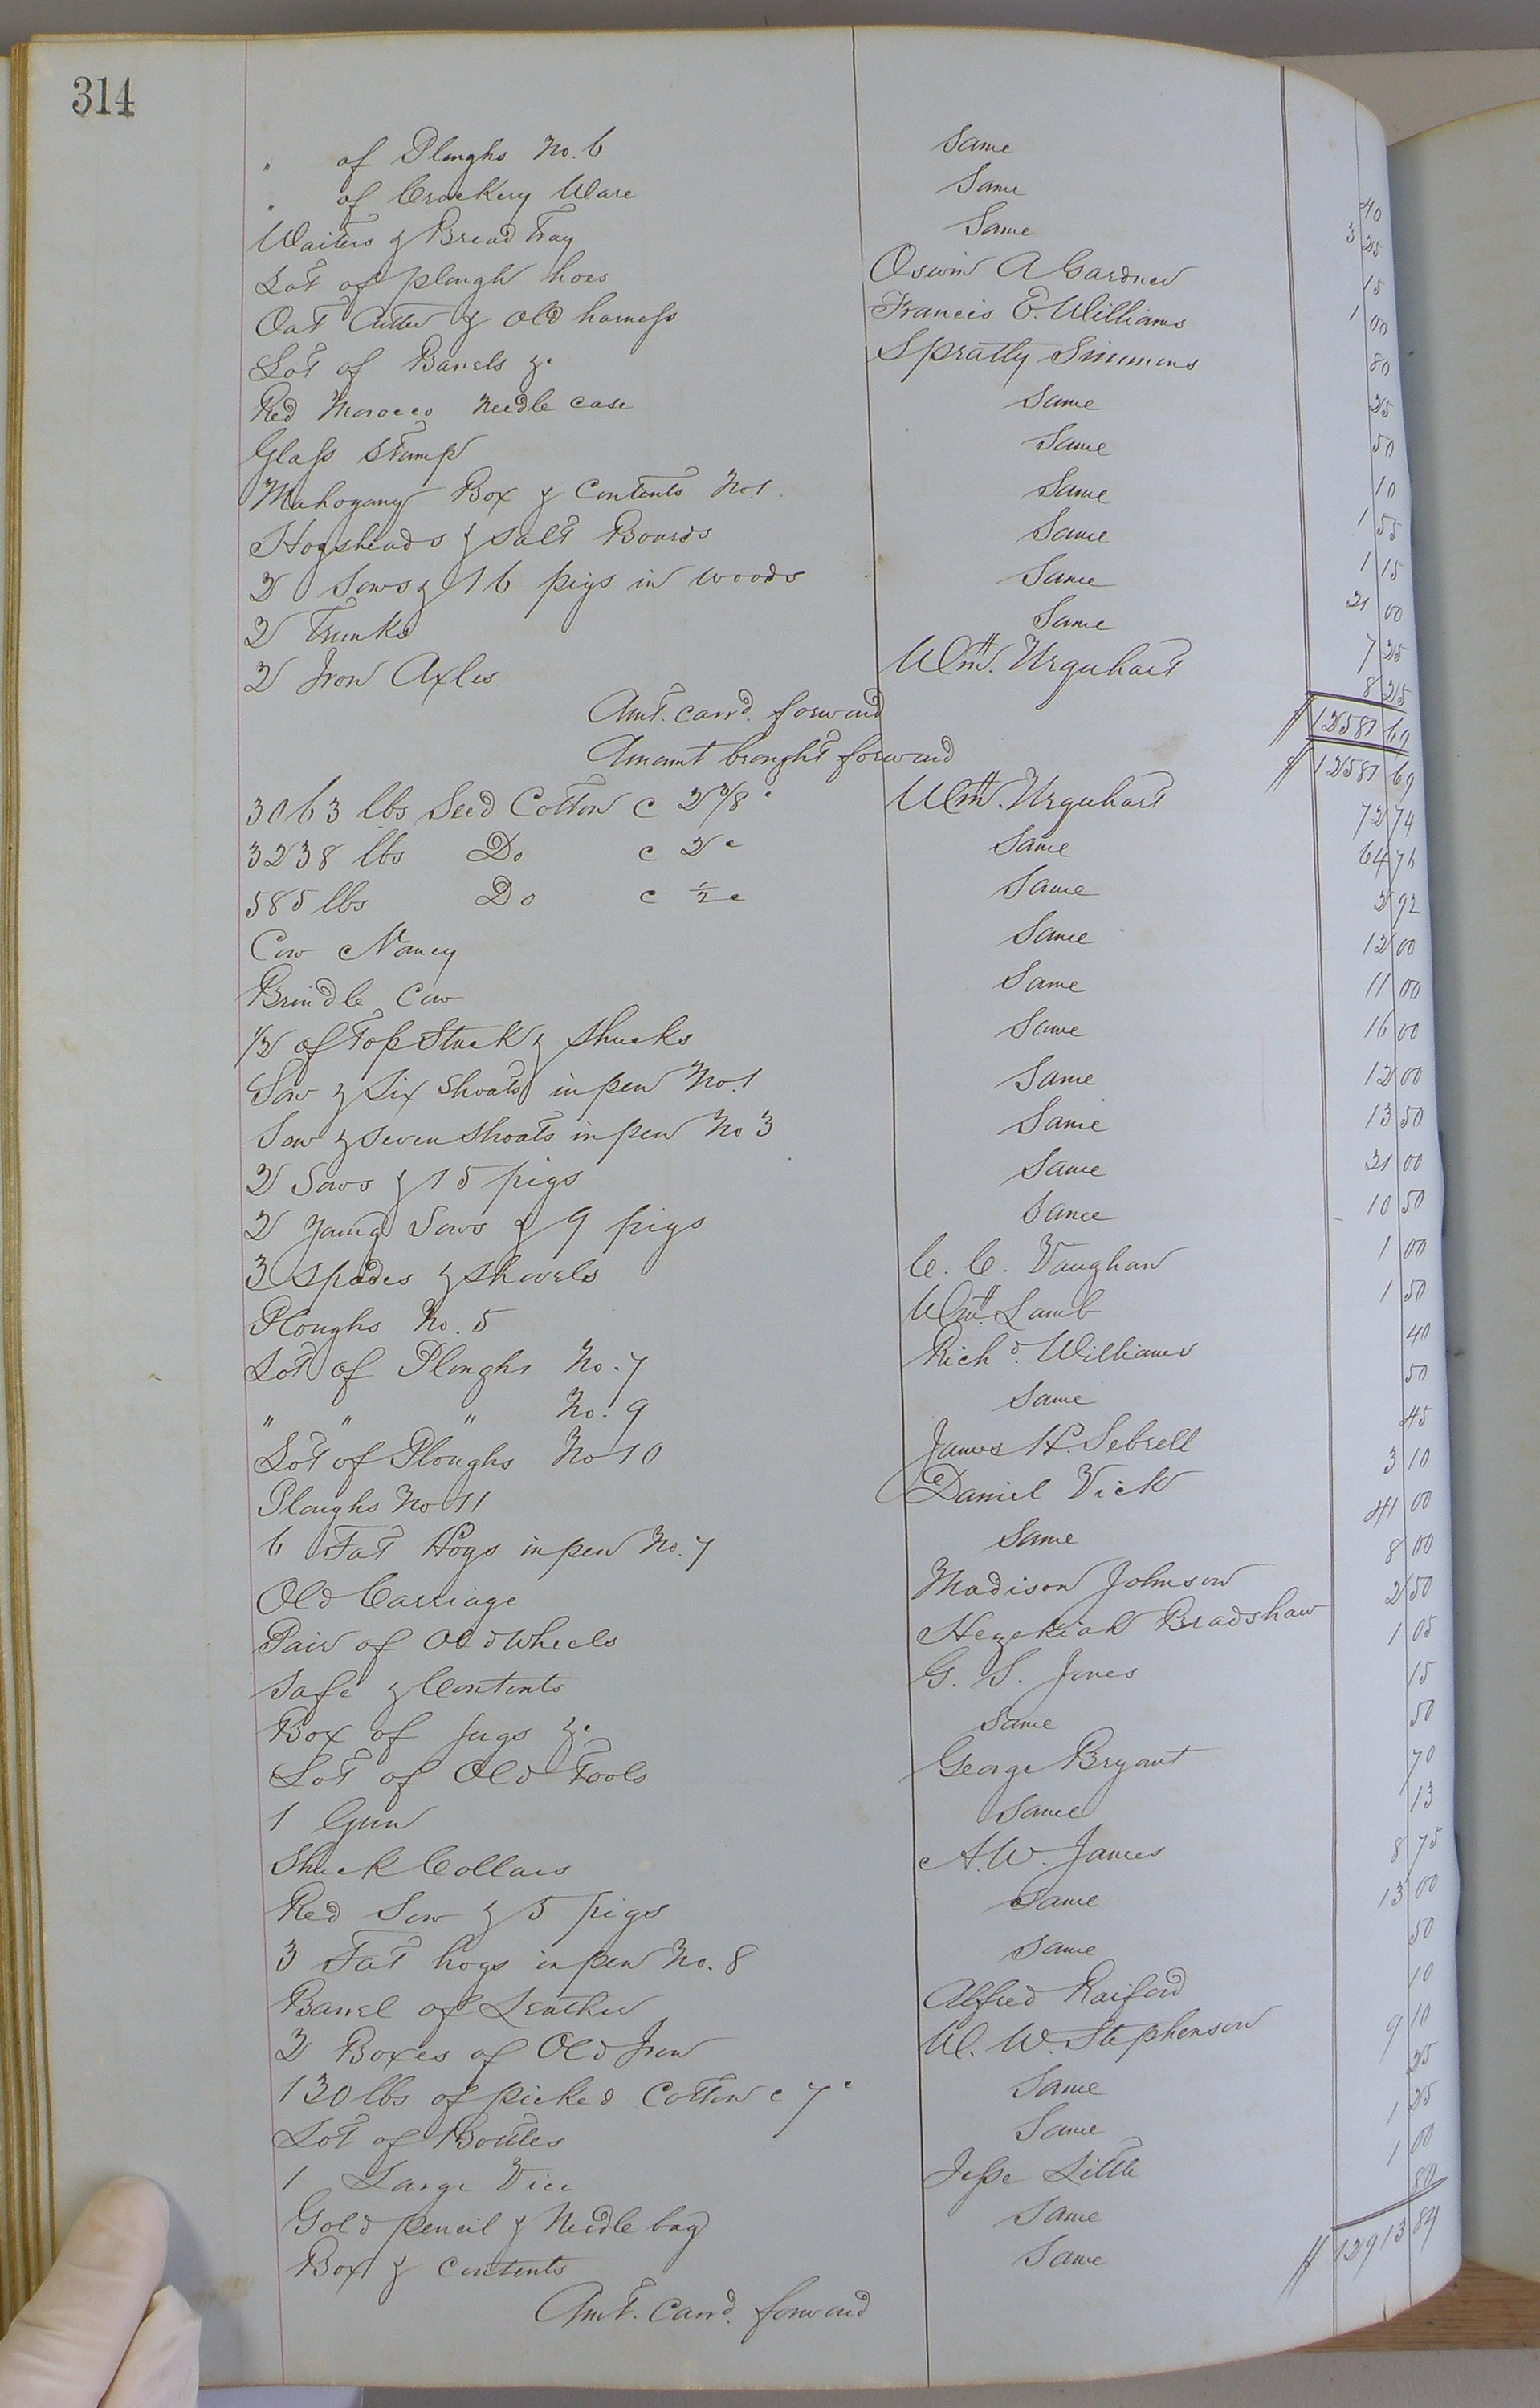 314
" of Ploughs No. 6 Same 40
" of Crockery Ware Same 3 25
Waiters & Bread Tray Same 15
Lot of plough hoes Oswin A Gardner 1 00
Oat Cutter & Old harness Francis E. Williams 80
Lot of Barrels &c Spratly Simmons 25
Red Morocco Needle case Same 50
Glass Stamp Same 10
Mahogany Box & Contents No. 1 Same 1 55
Hogsheads & Salt Boards Same 1 15
2 Sows & 16 pigs in woods Same 21 00
2 Trunks Same 7 25
2 Iron Axles Wm. Urquhart 8 25
Amt. carrd. forward $ 12581 69
Amount brought forward $ 12581 69
3063 lbs Seed Cotton c 2 3/8 c Wm. Urquhart 72 74
3238 lbs Do c 2 c Same 64 76
585 lbs Do c ½ c Same 2 92
Cow Nancy Same 12 00
Brindle Cow Same 11 00
1/2 of Top Stack & Shucks Same 16 00
Sow & Six Shoats in pen No. 1 Same 12 00
Sow & Seven Shoats in pen No 3 Same 13 50
2 Sows & 15 pigs Same 21 00
2 Young Sows & 9 pigs Same 10 50
3 Spades & Shovels C. C. Vaughan 1 00
Ploughs No. 5 Wm. Lamb 1 50
Lot of Ploughs No. 7 Richd. Williams 40
" " " No. 9 Same 50
Lot of Ploughs No 10 James H. Sebrell 45
Ploughs No 11 Daniel Vick 3 10
6 Fat Hogs in pen No. 7 Same 41 00
Old Carriage Madison Johnson 8 00
Pair of Old Wheels Hezekiah Bradshaw 2 50
Safe & Contents G. S. Jones 1 05
Box of Jugs &c Same 15
Lot of Old Tools George Bryant 50
1 Gun Same 70
Shuck Collars A. W. James 13
Red Sow & 5 pigs Same 8 75
3 Fat hogs in pen No. 8 Same 13 00
Barrel of Leather Alfred Raiford 50
2 Boxes of Old Iron W. W. Stephenson 10
130 lbs of picked Cotton c 7 c Same 9 10
Lot of Bottles Same 25
1 Large Vice Jesse Little 1 25
Gold pencil & Needle bag Same 1 00
Box & Contents Same 80
Amt. Carrd. forward $ 12913 84